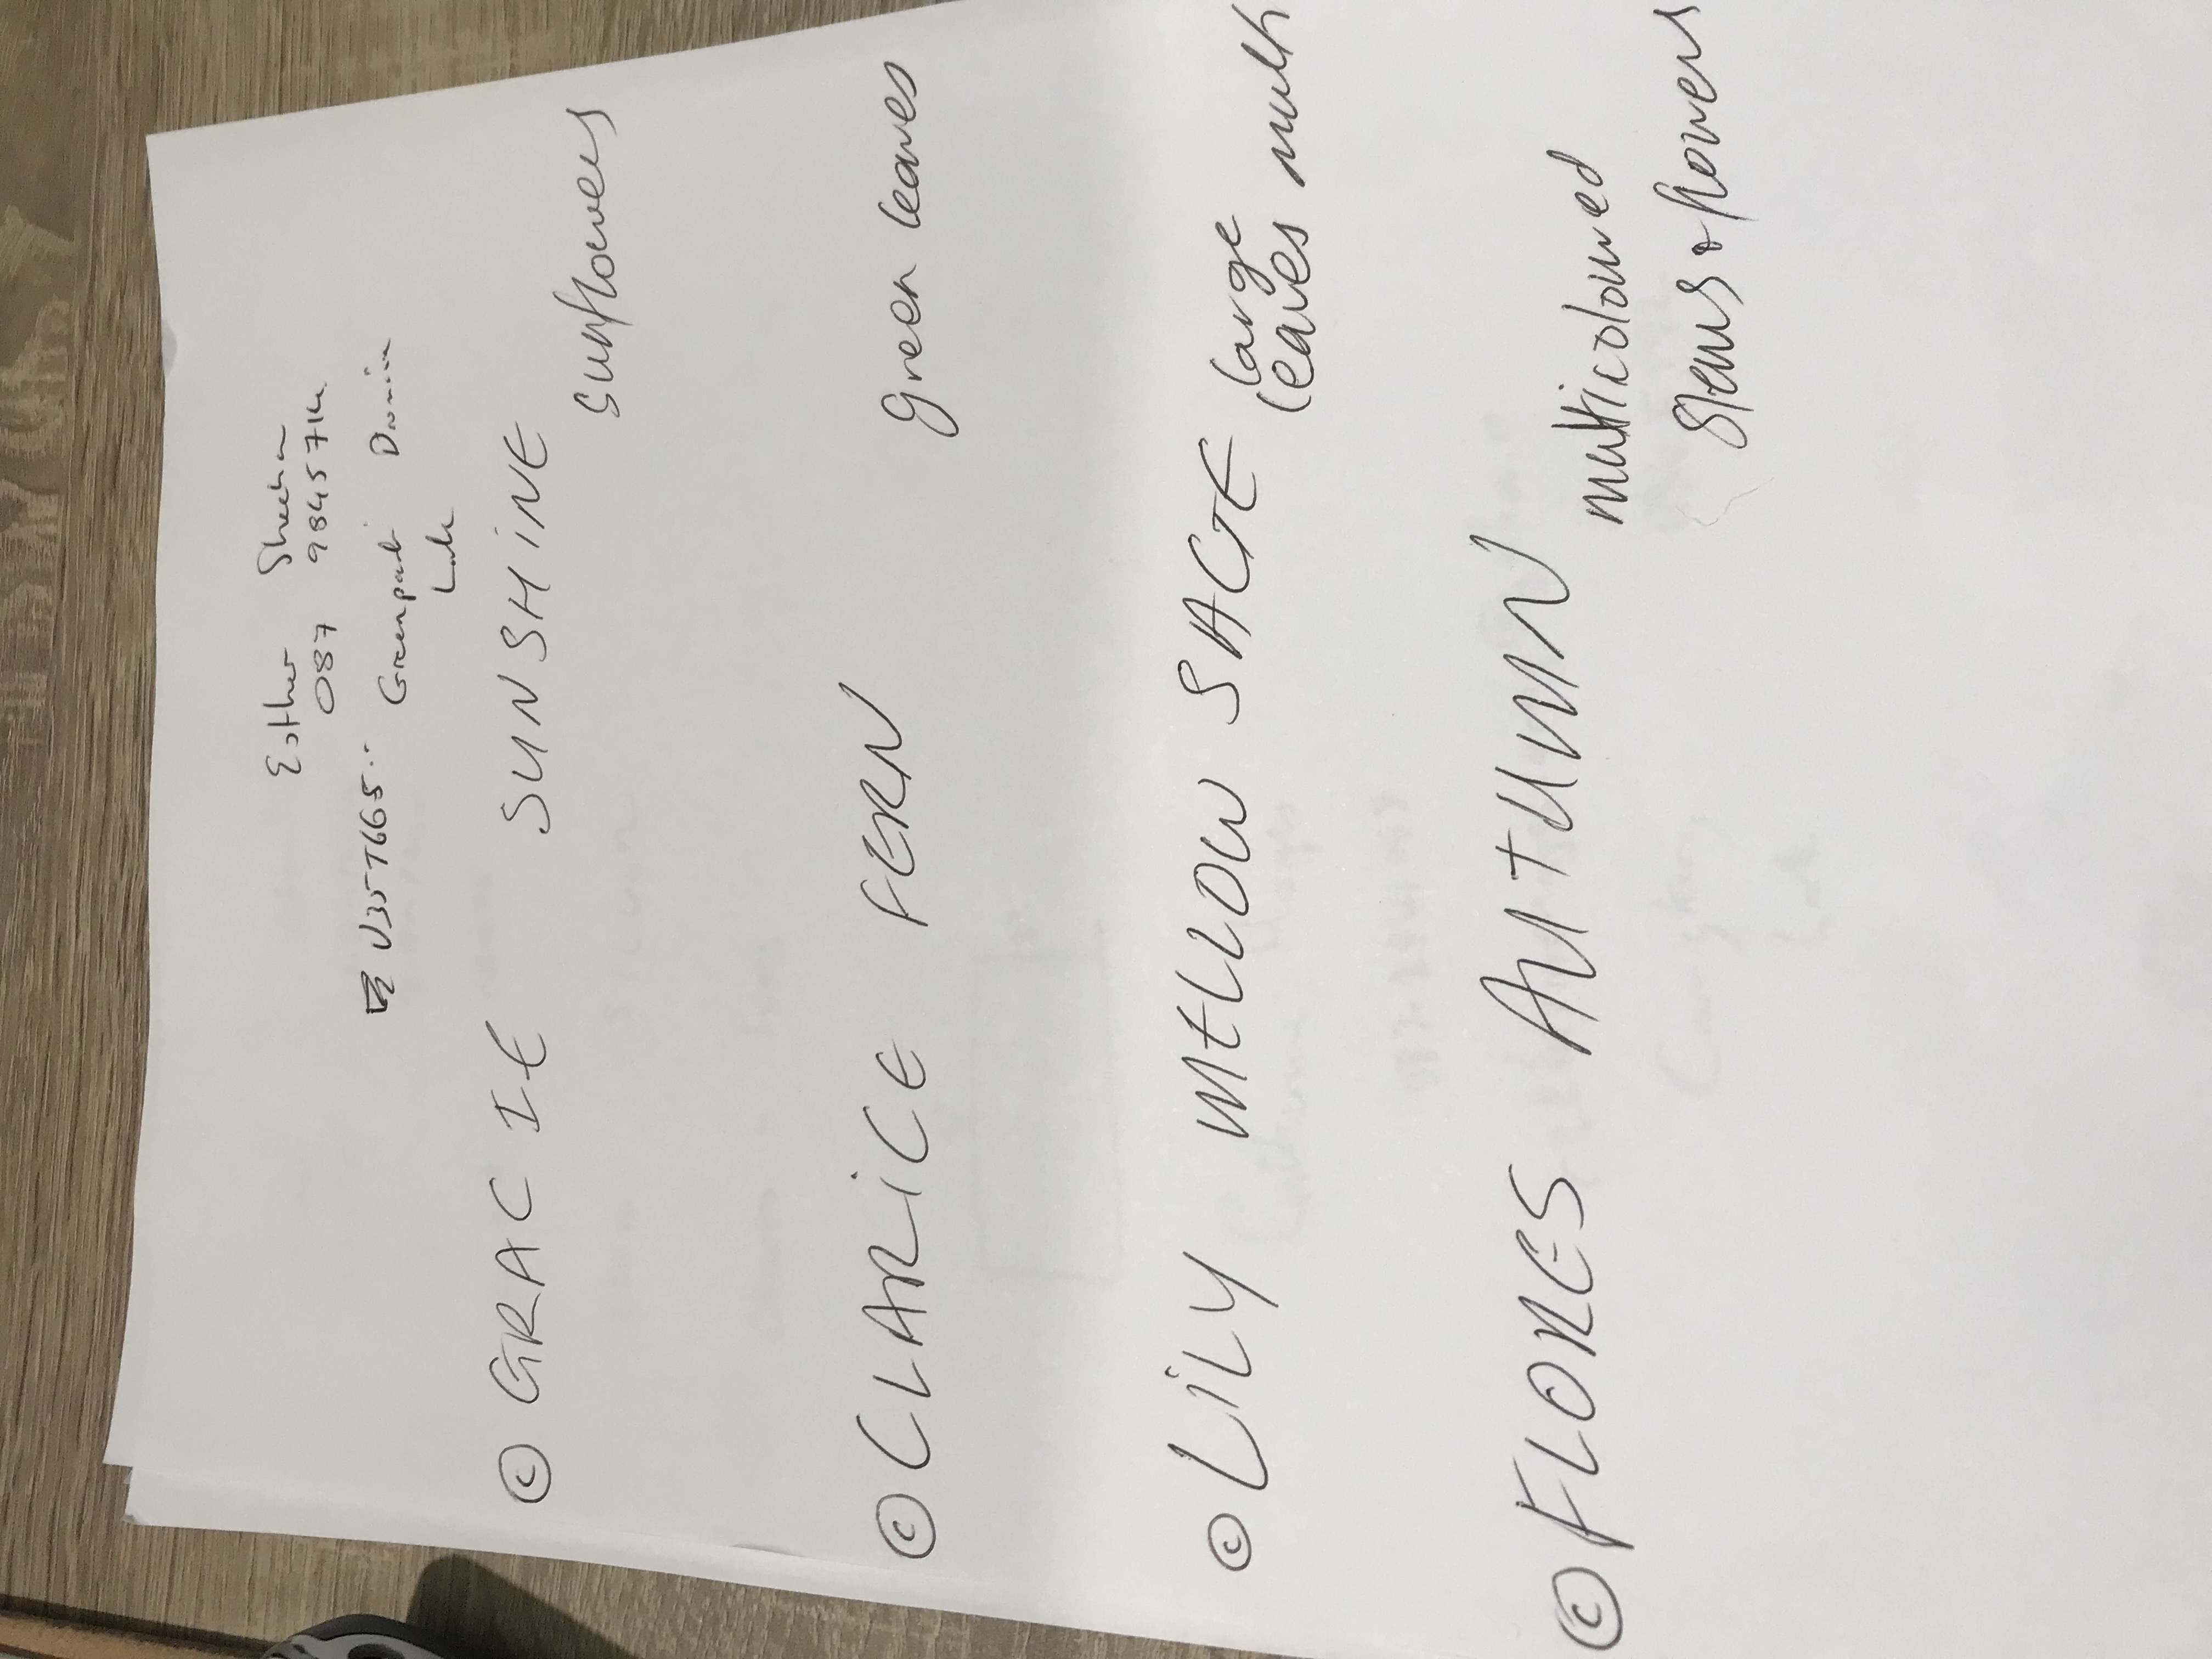 Esther Sheehan
087 9845714
V35T665
Greenpark
© GRACIE SUNSHINE
sunflowers
© CLARICE FERN green leaves
© LILY MELLOW SAGE large
leaves multi
© FLORES AUTUMN multicoloured
stems & flowers